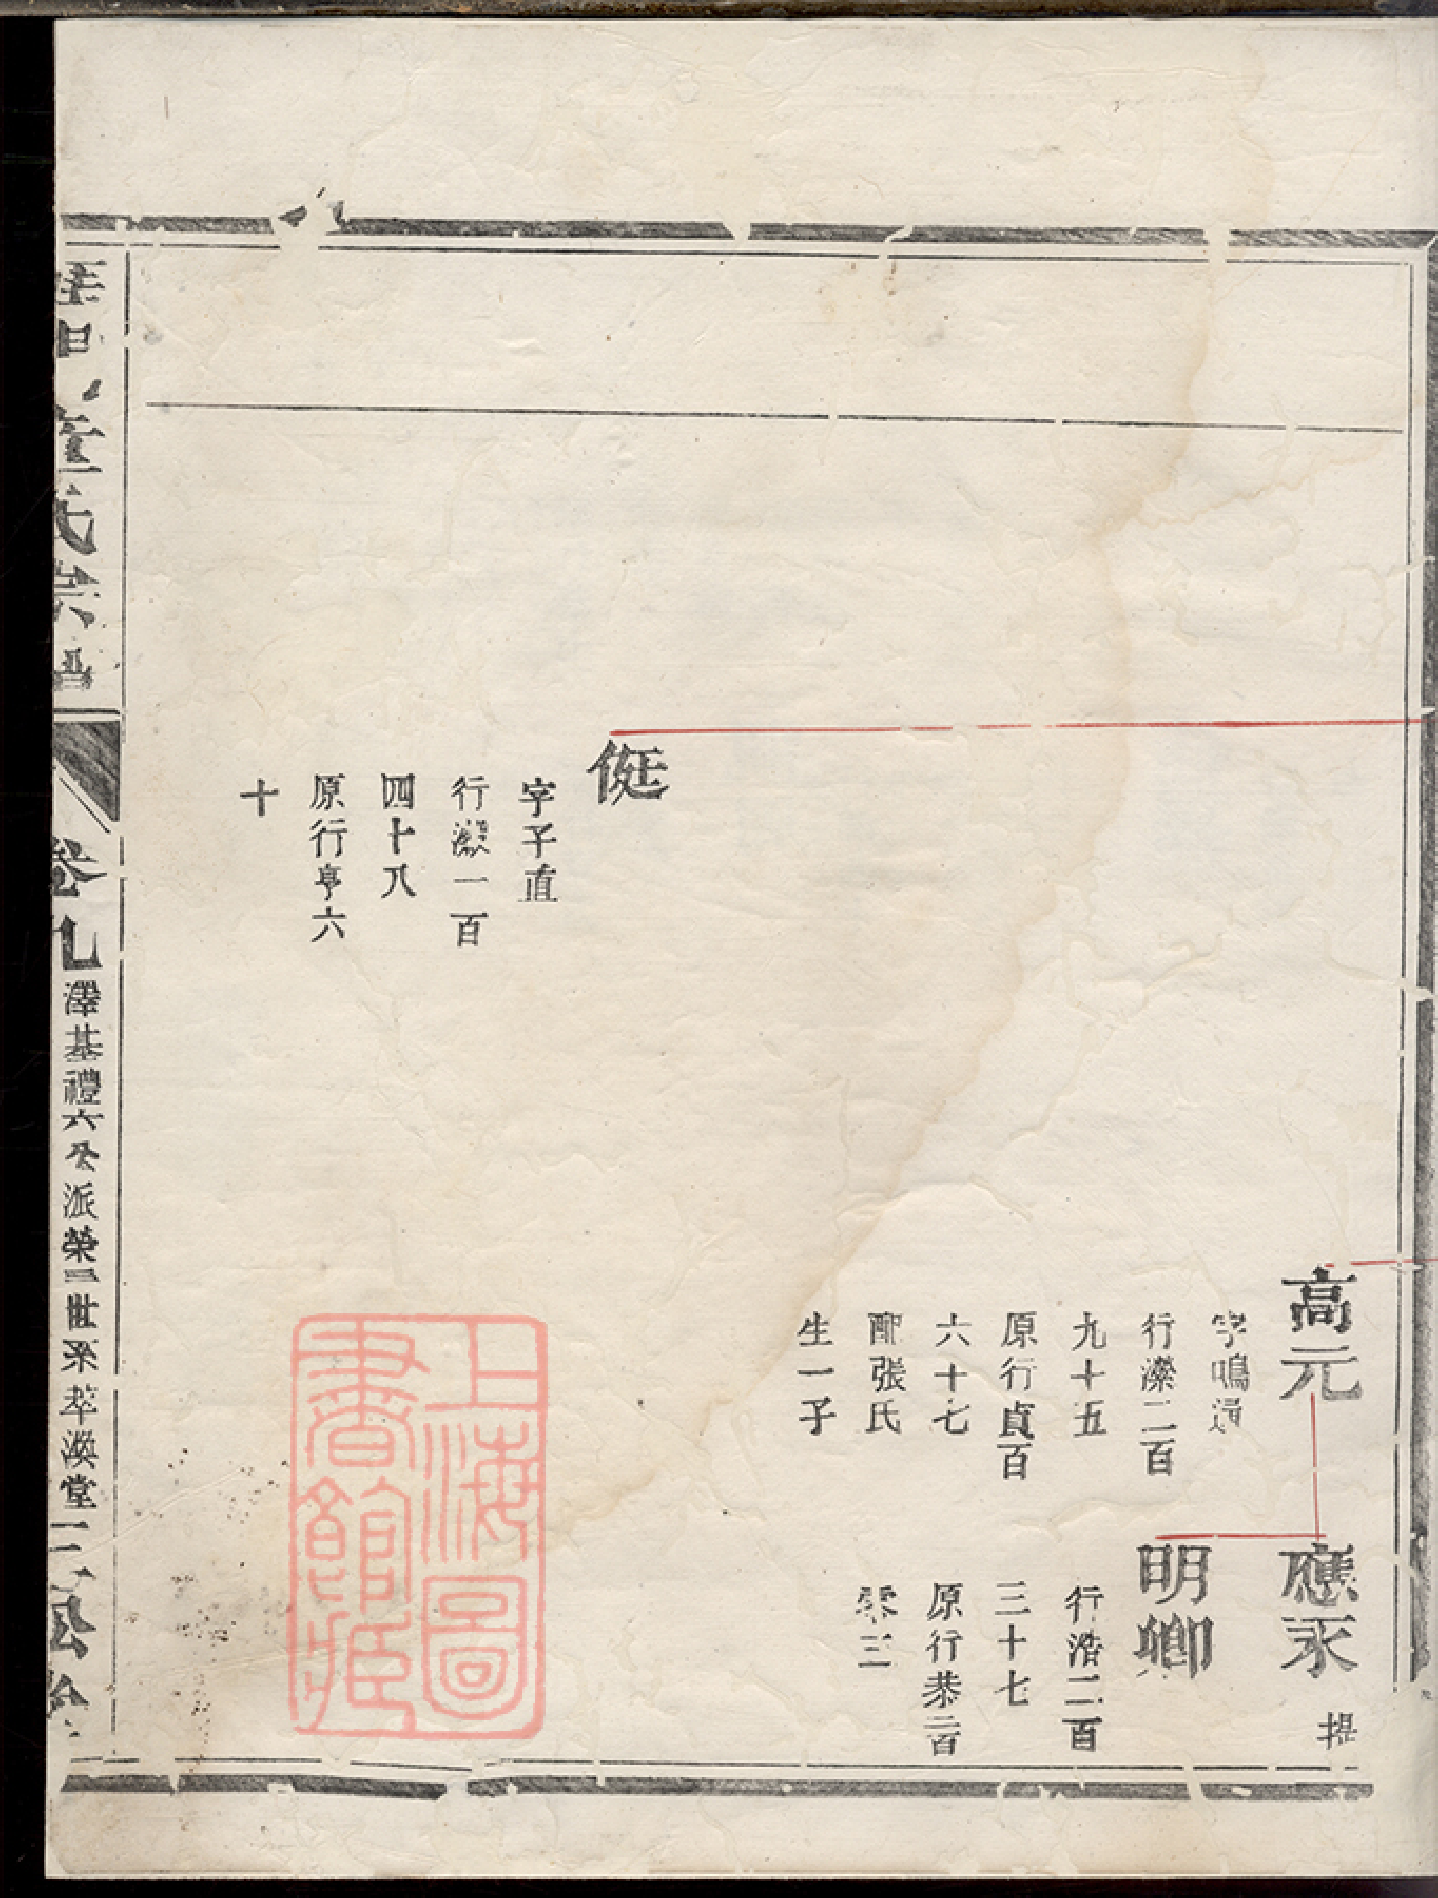 高元
字鳴
行濼二百
九十五
原行貞百
六十七
配張氏
生一子
應承
提
明卿
行濟二百
三十七
原行恭二百
三
侹
字子直
行瀫一百
四十八
原行亨六
十
氏宗
卷九
澤基禮六公派榮二世系萃渙堂
上海圖
書館藏